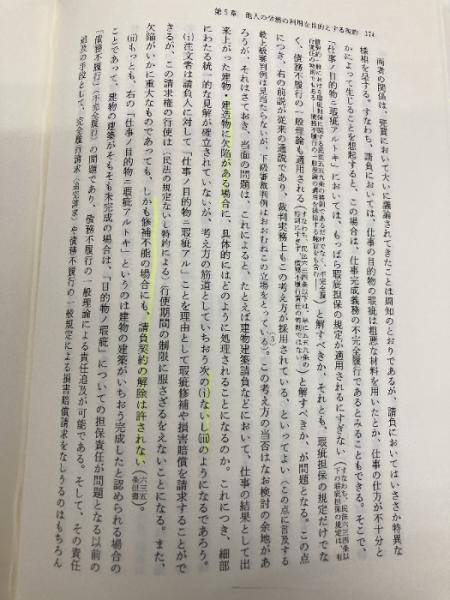 第5章 他人の労務の利用を目的とする契約 174
両者の関係は、売買において大いに議論されてきたことは周知のとおりであるが、請負においてはいささか特異な
様相を呈する。すなわち、請負においては、仕事の目的物の瑕疵は粗悪な材料を用いたとか、仕事の仕方が不十分と
かによって生じることを想起すると、この場合は、仕事完成義務の不完全履行であるとみることもできる。そこで、
「仕事ノ目的物ニ瑕疵アルトキ」においては、もっぱら瑕疵担保の規定が適用されるにすぎない
と解すべきか、それとも、瑕疵担保の規定だけでな
く、債務不履行の一般理論も適用される
と解すべきか、が問題となる。この点
につき、右の前説が従来の通説であり、裁判実務上もこの考え方が採用されている、といってよい(この点に言及する
最上級審判例は見当らないが、下級審裁判例はおおむねこの立場をとっている)。この考え方の当否はなお検討の余地があ
ろうが、それはさておき、当面の問題は、これによると、たとえば建物建築請負などにおいて、仕事の結果として出
来上がった建物・建造物に欠陥がある場合に、具体的にはどのように処理されることになるのか。これにつき、細部
にわたる統一的な見解が確立されていないが、考え方の筋道としていちおう次の(i)ないし(iii)のようになるであろう。
(i)注文者は請負人に対して「仕事ノ目的物ニ瑕疵アル」ことを理由として瑕疵修補や損害賠償を請求することがで
きるが、この請求権の行使は(民法の規定ないし特約による)行使期間の制限に服さざるをえないことになる。また、
欠陥がいかに重大なものであっても、しかも修補不能の場合にも、請負契約の解除は許されない(六三五条但書)。
(ii)もっとも、右の「仕事ノ目的物ニ瑕疵アルトキ」というのは建物の建築がいちおう完成したと認められる場合の
ことであって、建物の建築がそもそも未完成の場合には、「目的物ノ瑕疵」についての担保責任が問題となる以前の
「債務不履行」(不完全履行)の問題であり、債務不履行の一般理論による責任追及が可能である。そして、その責任
追及の手段として、完全履行請求(追完請求)や債務不履行の一般規定による損害賠償請求をなしうるのはもちろん